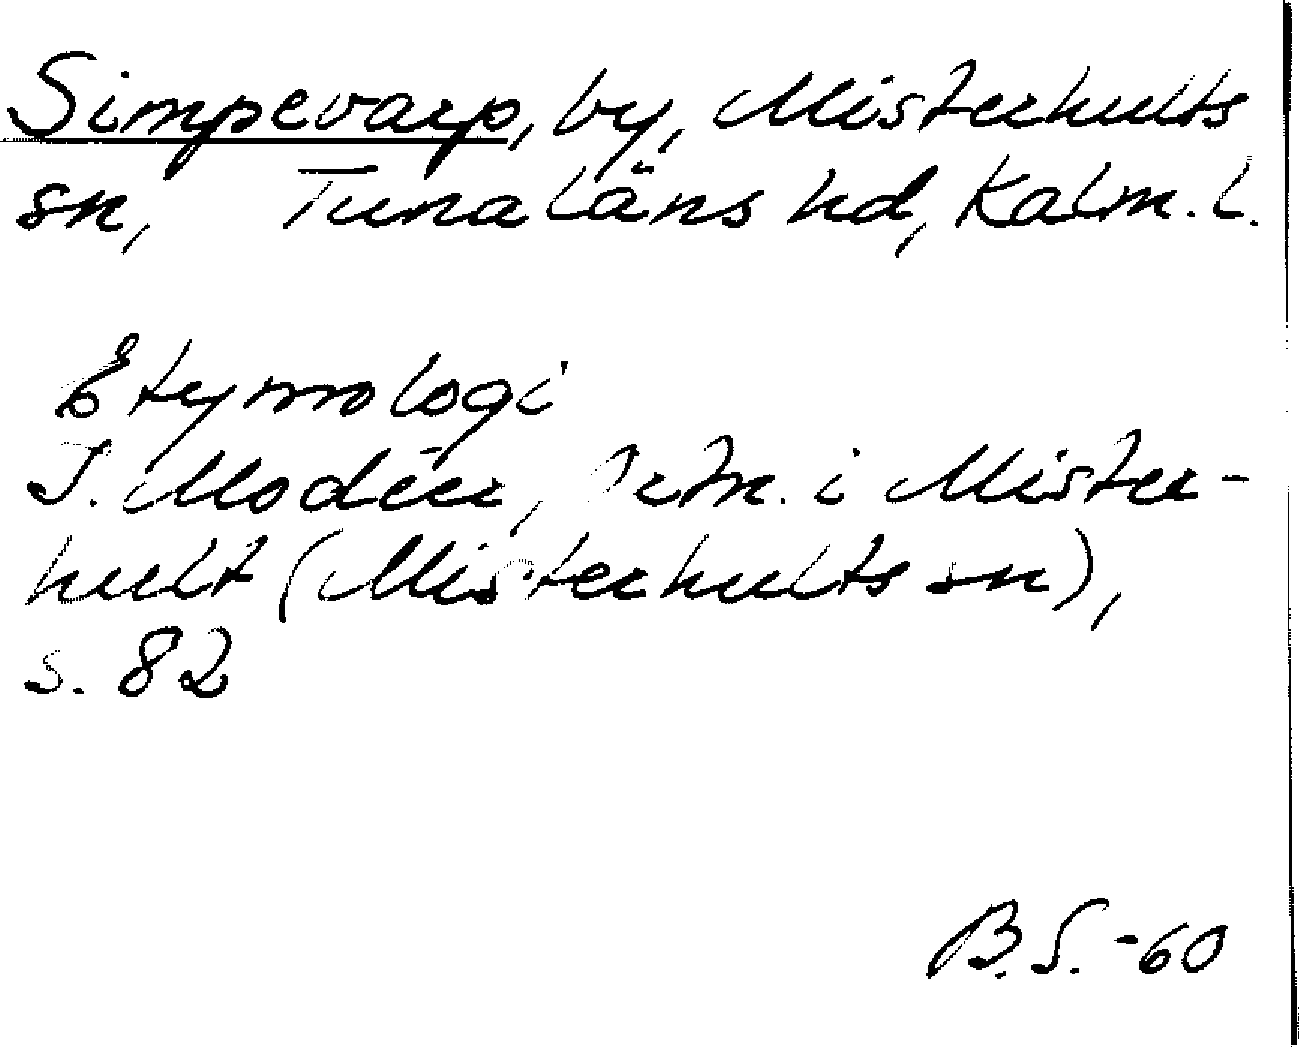 Simpevarp, by, Misterhults
sn, Tunaläns hd, Kalm. l.
Etymologi
I. Modéer, Ortn. i Mister-
hult (Misterhults sn),
s. 82
B.S. -60